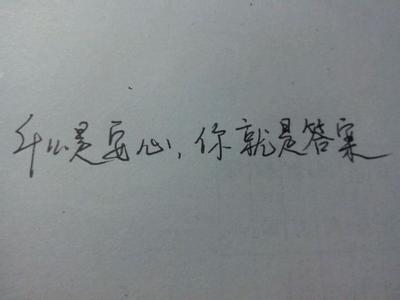 什么是安心,你就是答案